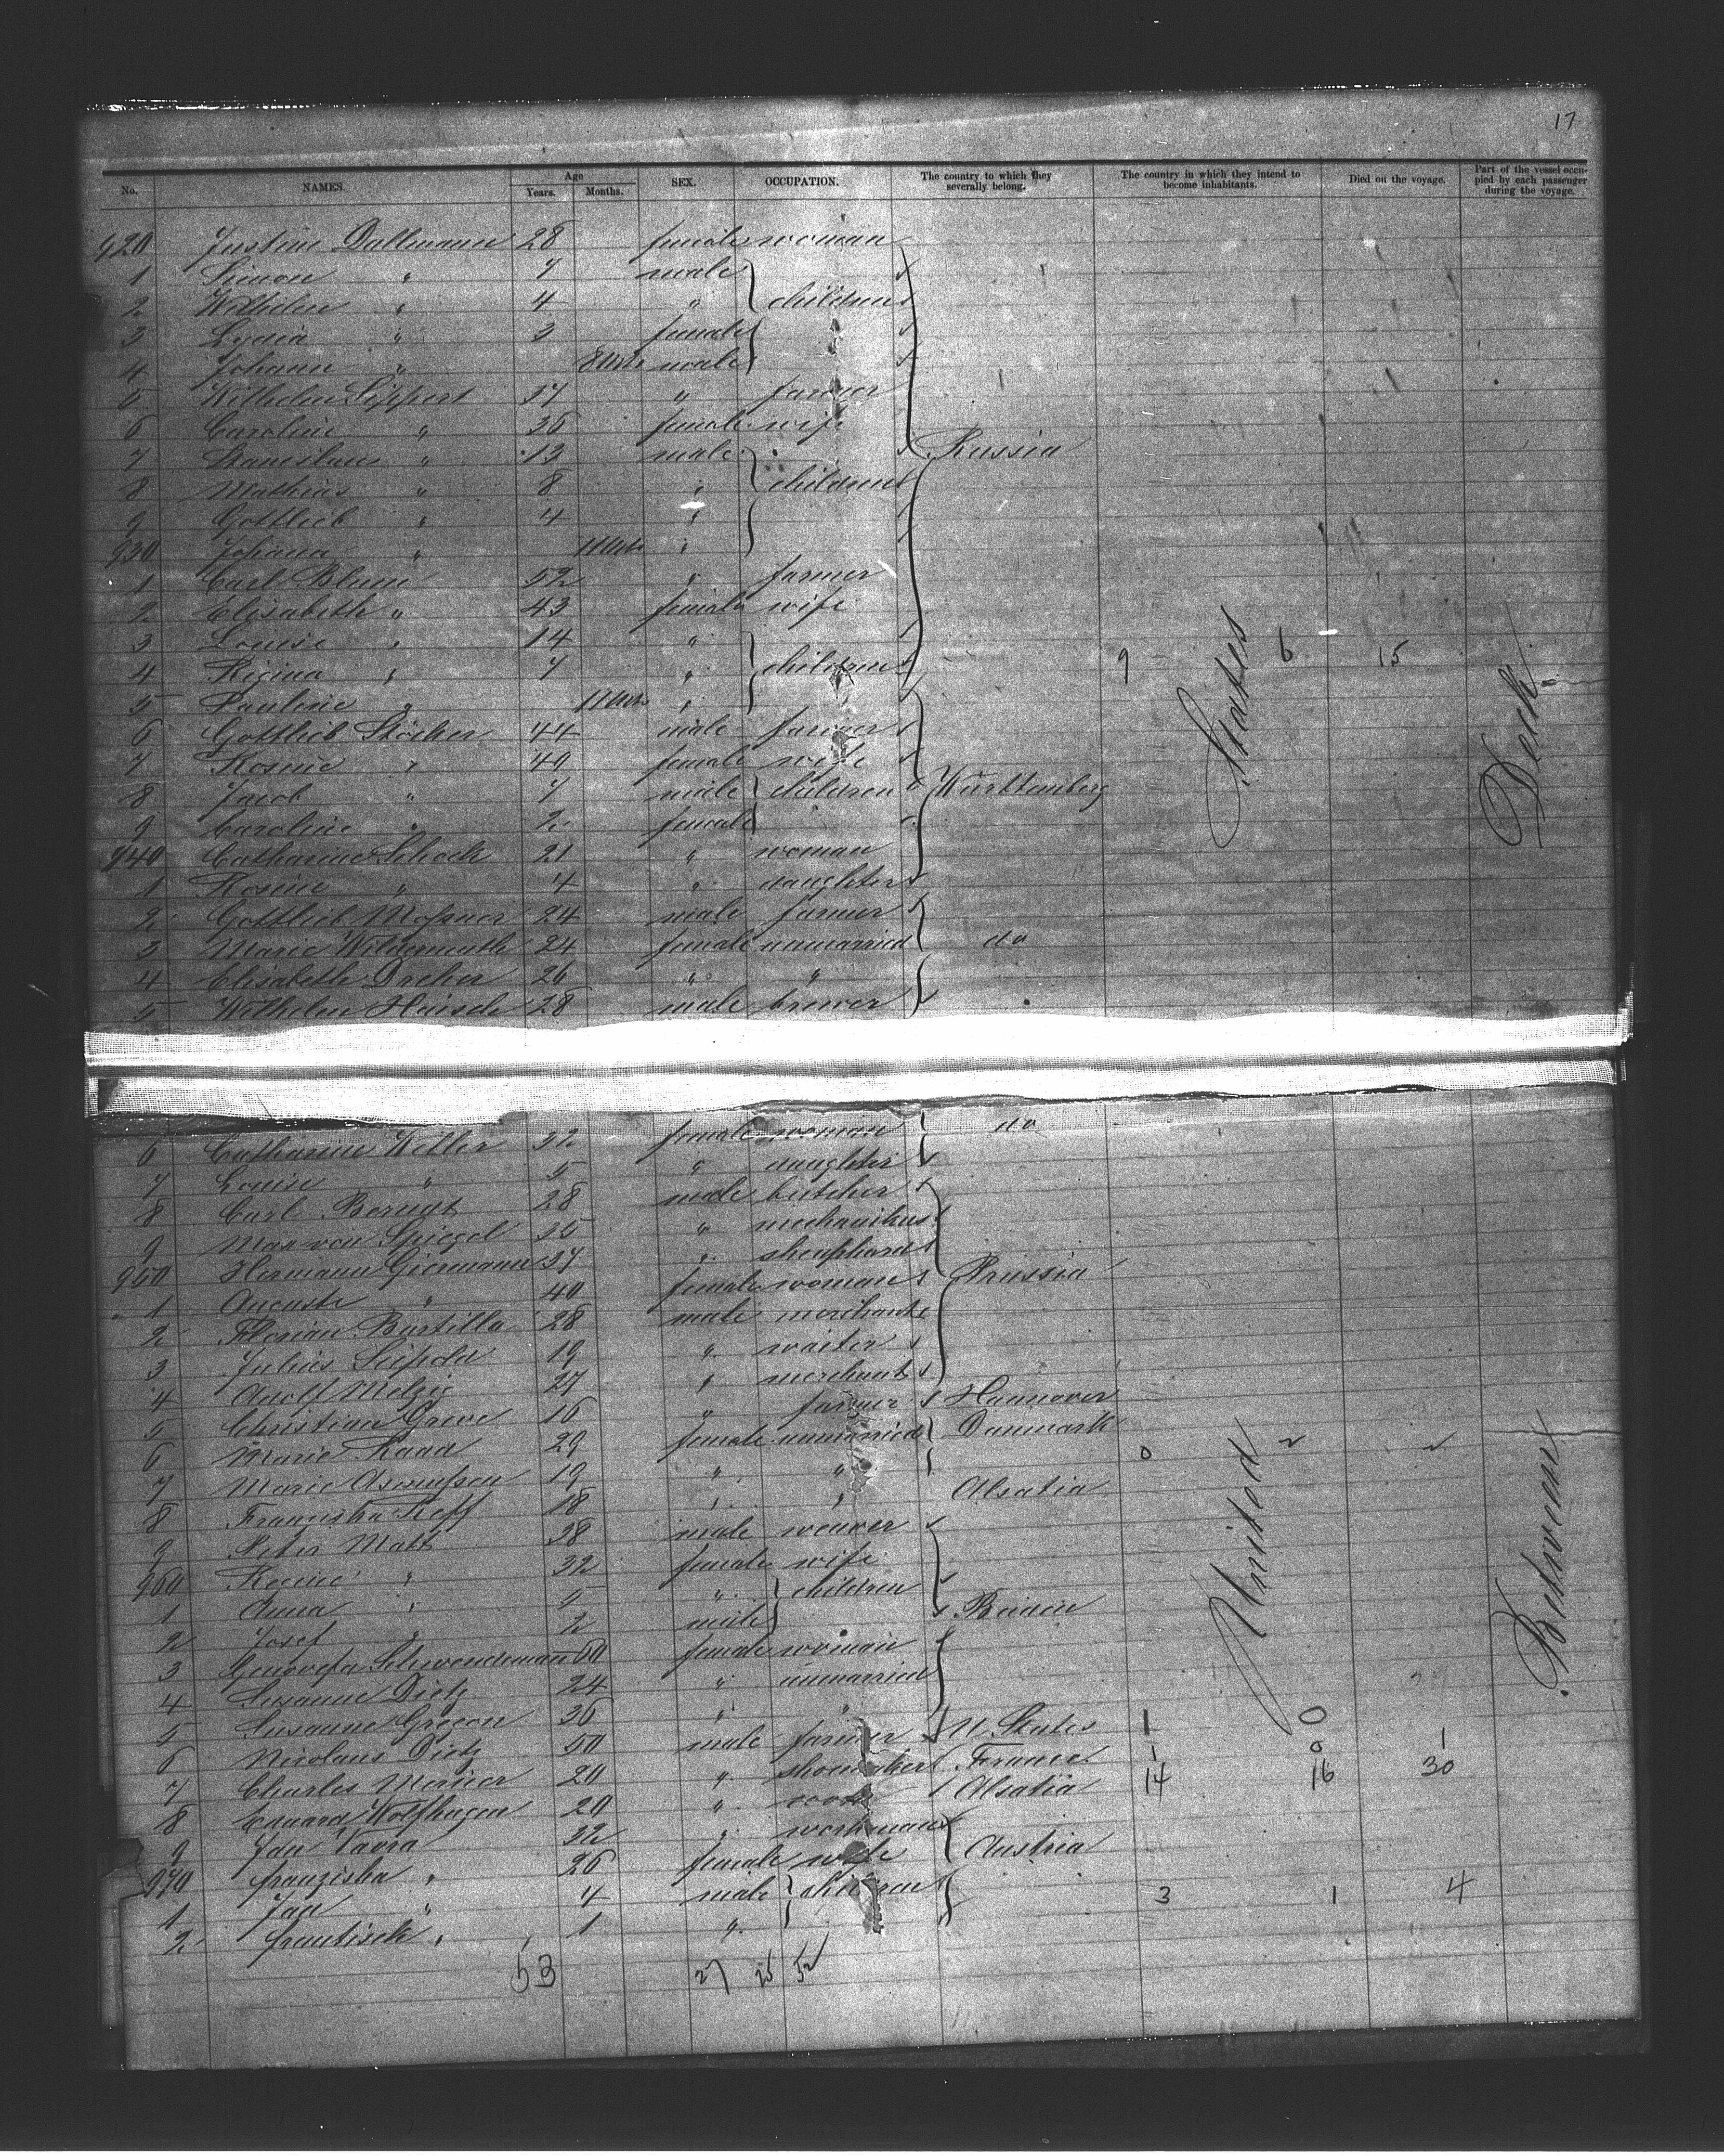 17
No. NAMES. Age Years. Months. SEX. OCCUPATION. The country to which they severally belong. The country in which they intend to become inhabitants. Died on the voyage. Part of the vessel occupied by each passenger during the voyage.
920 Justine Dallmann 28 female woman
1 Simon " 7 male
2 Wilhelm " 4 " children
3 Lydia " 3 female
4 Johann " 8 Mts male
5 Wilhelm Lippert 37 " farmer
6 Caroline " 36 female wife
7 Stanislaus " 13 male Russia
8 Mathias " 8 " children
9 Gottlieb " 4 "
930 Johana " 11 Mts "
1 Carl Blum 52 " farmer
2 Elisabeth " 43 female wife
3 Louise " 14 "
4 Regina " 7 " children 9 6 15
5 Pauline " 11 Mts "
6 Gottlieb Stöcker 44 male farmer
7 Rosine " 40 female wife
8 Jacob " 7 male children Württemberg
9 Caroline " 2 female
940 Catharine Schock 21 " woman
1 Rosine " 4 " daughter
2 Gottlieb 24 male farmer
3 Marie Wildermuth 24 female unmarried do
4 Elisabeth Dreher 26 " "
5 Wilhelm Haisch 28 male brewer
States
Deck
6 Catharine 32 female woman do
7 Louise " 5 " daughter
8 Carl Berndt 28 male butcher
9 Max von Spiegel 35 " mechanikus
950 Hermann Giermann 37 " sheaphard
1 Auguste " 40 female woman Prussia
2 Florian Bartilla 28 male merchant
3 Julius Leipold 19 " waiter
4 Adolf Melzig 27 " merchant
5 Christian Greve 16 " farmer Hannover
6 Marie Raad 29 female unmarried Danmark 0 2 2
7 Marie Asmussen 19 " "
8 Franziska 18 " " Alsatia
9 Peter Math 38 male weaver
960 Regine " 32 female wife
1 Anna " 5 " children
2 Josef " 2 male Baden
3 Genovefa Schwendemann 60 female woman
4 Susanne Dietz 24 " unmarried
5 Susanne Gregori 36 " "
6 Nicolaus Dietz 50 male farmer U. States 1 0 1
7 Charles 20 " shoemaker France 1 0 1
8 Eduard Wolfhagen 20 " Alsatia 14 16 30
9 Jan Vavra 32 " workman
970 franziska " 26 female wife Austria
1 Jan " 4 male children 3 1 4
2 frantisek " 1 "
United
Between
53 27 25 52